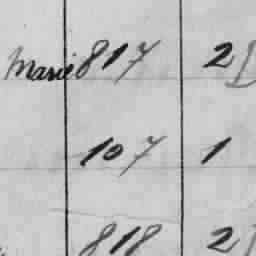 Marie 817 2
107 1
818 2